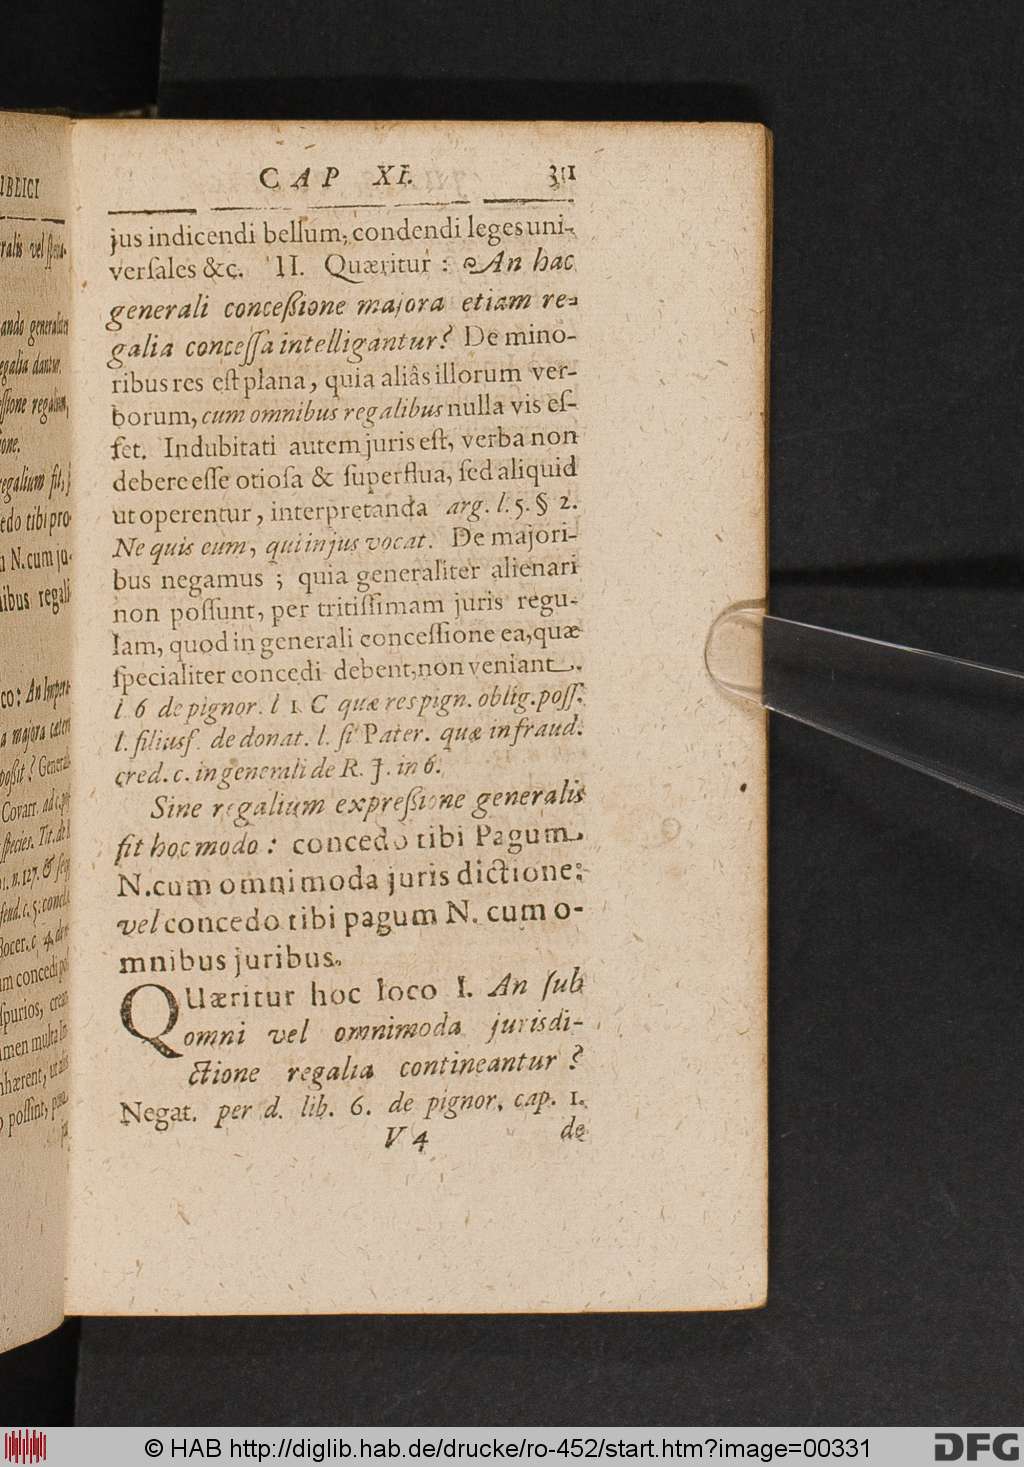 CAP XI. 311
jus indicendi bellum, condendi leges uni-
verſales &c. II. Quæritur : An hac
generali conceßione majora etiam re-
galia conceſſa intelligantur? De mino-
ribus res eſt plana, quia aliâs illorum ver-
borum, cum omnibus regalibus nulla vis eſ-
ſet. Indubitati autem juris eſt, verba non
debere eſſe otioſa & ſuperflua, ſed aliquid
ut operentur, interpretanda arg. l. 5. § 2.
Ne quis eum, qui in jus vocat. De majori-
bus negamus ; quia generaliter alienari
non poſſunt, per tritiſſimam juris regu-
lam, quod in generali conceſſione ea, quæ
ſpecialiter concedi debent, non veniant.
l 6 de pignor. l 1 C quæ res pign. oblig. poſſ.
l. filiusf. de donat. l. ſi Pater. quæ in fraud.
cred. c. in generali de R. J. in 6.
Sine regalium expreßione generalis
fit hoc modo : concedo tibi Pagum
N. cum omnimoda juris dictione:
vel concedo tibi pagum N. cum o-
mnibus juribus.
QUæritur hoc loco I. An ſub
omni vel omnimoda jurisdi-
ctione regalia contineantur ?
Negat. per d. lib. 6. de pignor. cap. 1.
V 4 de
IBEICI
ralis vel
ando
egalia dantur.
ſſione regalium,
ione.
regalium fit,
edo tibi pro-
N. cum ju-
nibus regali-
co: An Impera-
a majora
poßit ? General-
Covarr.
ſpecies. Tit. de
n. 127. &
feud. c. 5.
Bocer. c. 4.
m concedi
ſpurios,
amen multa
nhærent, ut
poſſint,
© HAB http://diglib.hab.de/drucke/ro-452/start.htm?image=00331
DFG